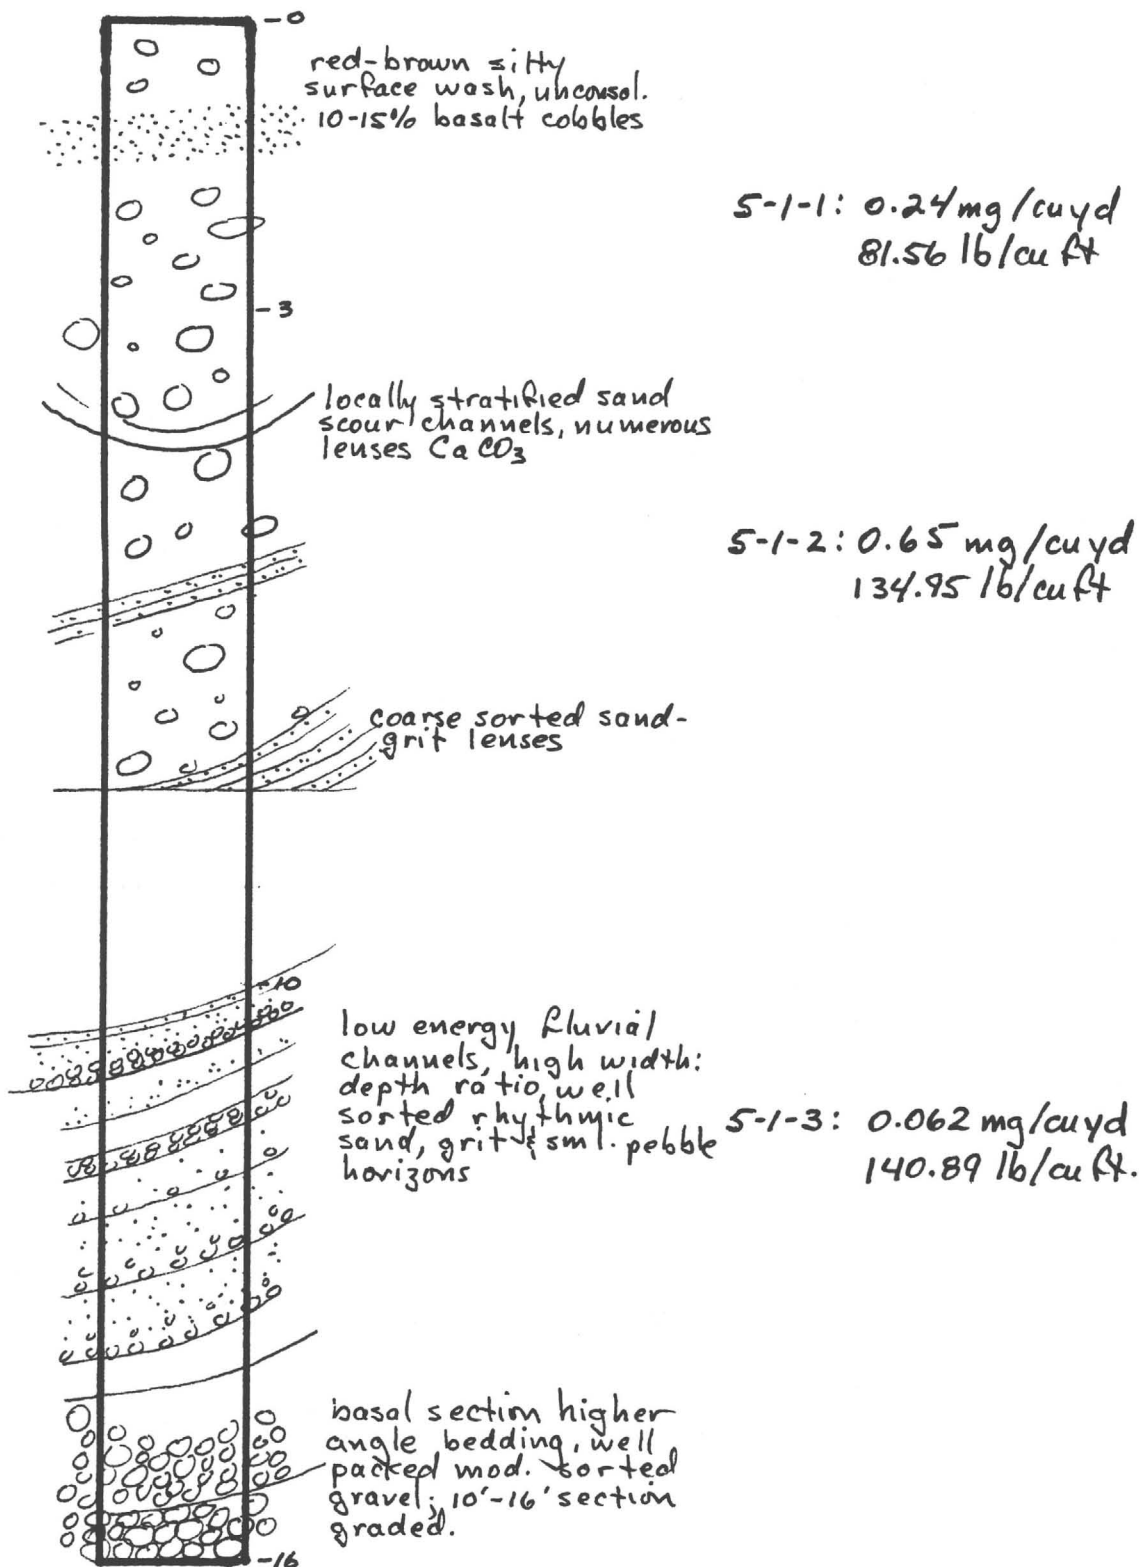 -0
red-brown silty
surface wash, unconsol.
10-15% basalt cobbles
5-1-1: 0.24 mg/cu yd
81.56 lb/cu ft
-3
locally stratified sand
scour channels, numerous
lenses CaCO3
5-1-2: 0.65 mg/cu yd
134.95 lb/cu ft
coarse sorted sand-
grit lenses
-10
low energy fluvial
channels, high width:
depth ratio, well
sorted rhythmic
sand, grit & sml. pebble
horizons
5-1-3: 0.062 mg/cu yd
140.89 lb/cu ft.
basal section higher
angle bedding, well
packed mod. sorted
gravel; 10'-16' section
graded.
-16